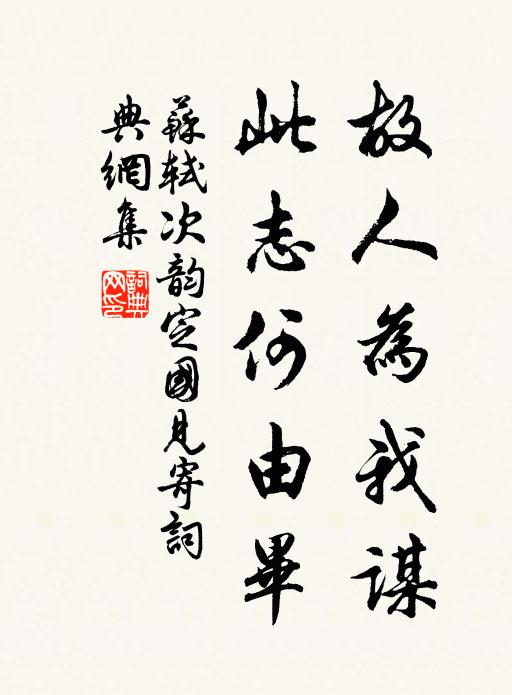 故人為我謀
此志何由畢
蘇軾次韵定國見寄詞
典網集
詞典
网印